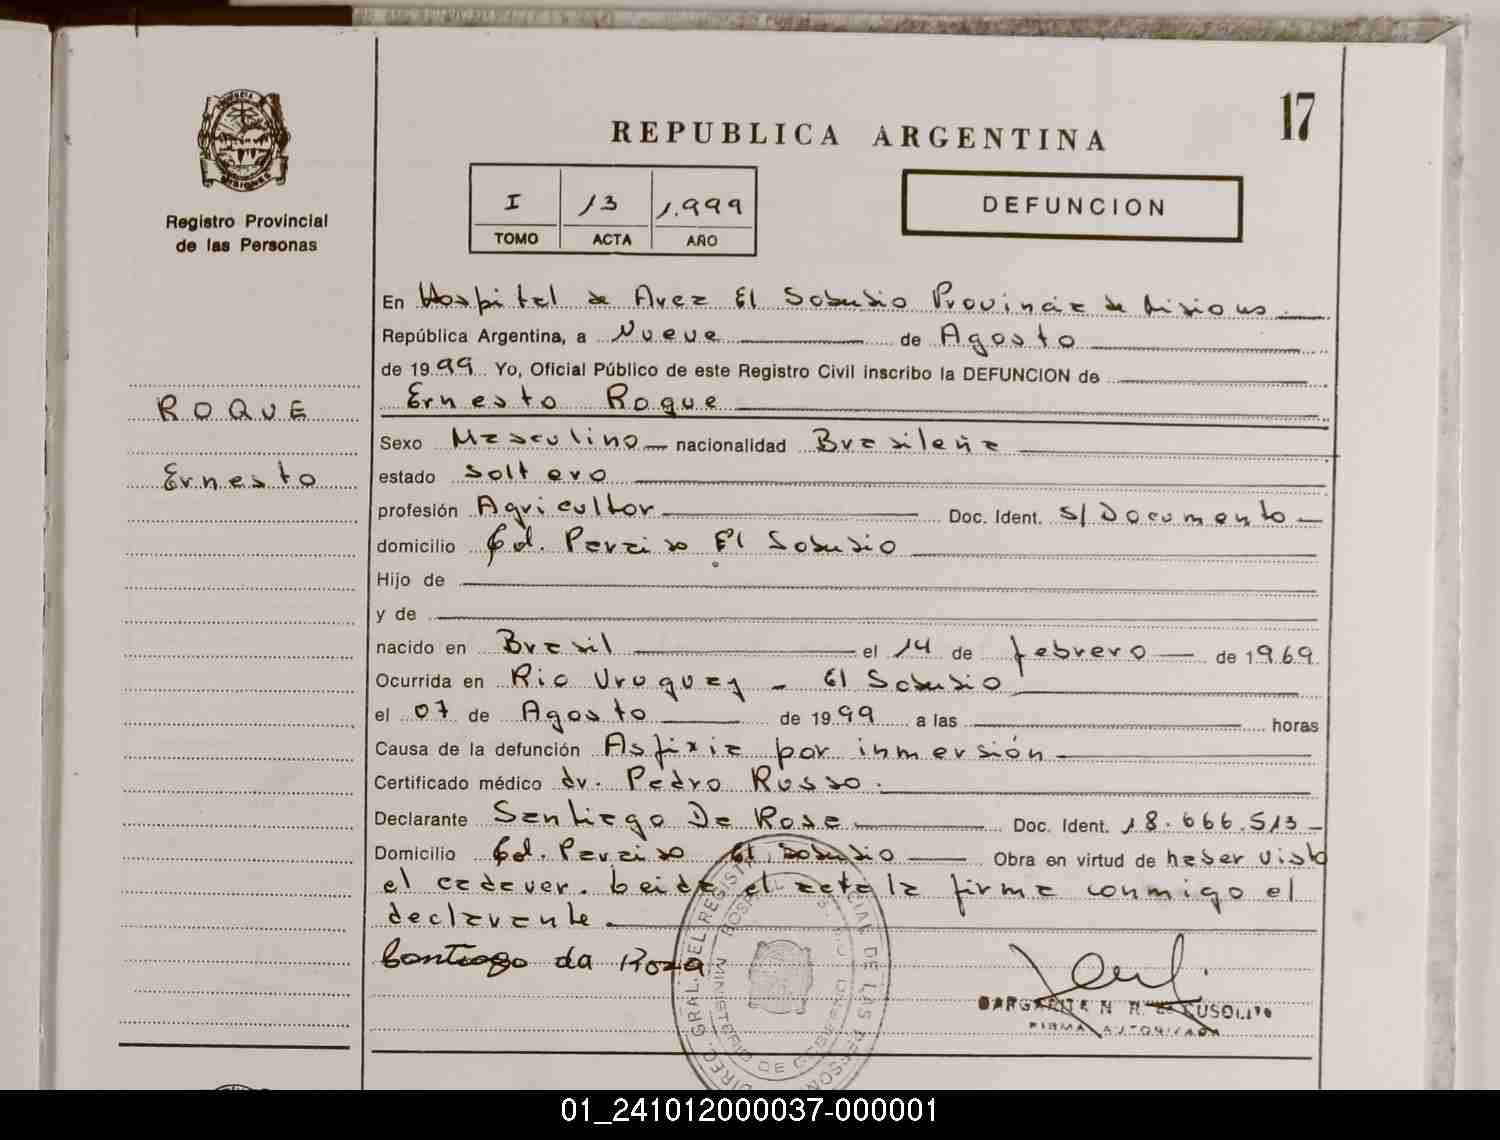 17
REPUBLICA ARGENTINA
MISIONES
Registro Provincial
de las Personas
I 13 1.999
TOMO ACTA AÑO
DEFUNCION
ROQUE
Ernesto
En Hospital de Area El Soberbio Provincia de Misiones
República Argentina, a Nueve de Agosto
de 1999 Yo, Oficial Público de este Registro Civil inscribo la DEFUNCION de
Ernesto Roque
Sexo Masculino nacionalidad Brasileña
estado Soltero
profesión Agricultor Doc. Ident. s/Documento
domicilio Cd. Paraiso El Soberbio
Hijo de
y de
nacido en Brasil el 14 de febrero de 1969
Ocurrida en Rio Uruguay - El Soberbio
el 07 de Agosto de 1999 a las horas
Causa de la defunción Asfixia por inmersión
Certificado médico dr. Pedro Russo.
Declarante Santiago Da Rosa Doc. Ident. 18.666.513
Domicilio Cd. Paraiso El Soberbio Obra en virtud de haber visto
el cadaver. Leida el acta la firma conmigo el
declarante
Santiago da Roza
FIRMA AUTORIZADA
DIREC. GRAL. DEL REGISTRO DE LAS PERSONAS
MINISTERIO DE GOBIERNO
HOSPITAL
01_241012000037-000001